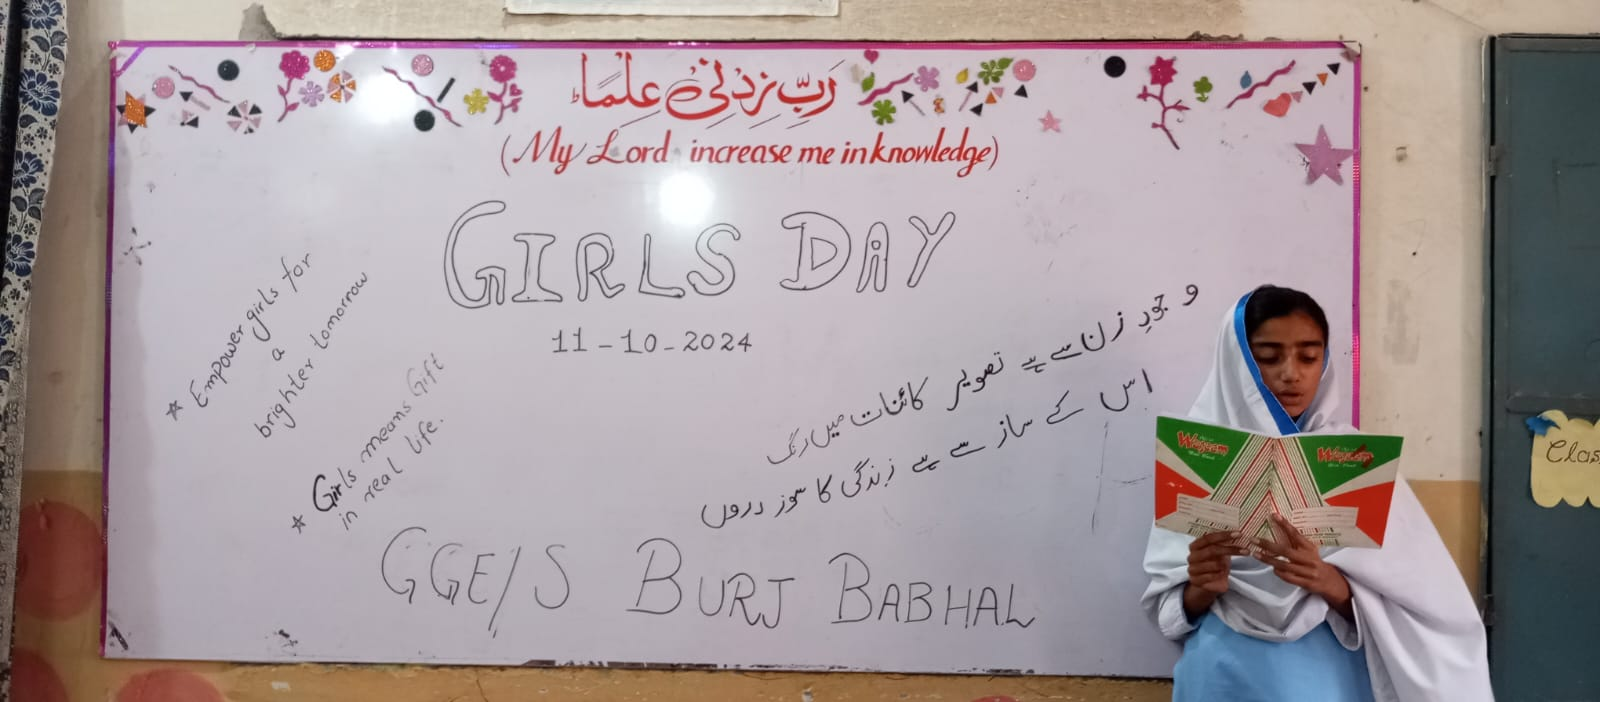 رَبِّ زِدْنِیْ عِلْمًا
(My Lord increase me in knowledge)
GIRLS DAY
11-10-2024
* Empower girls for
a
brighter tomorrow
* Girls means Gift
in real life.
وجودِ زن سے ہے تصویر کائنات میں رنگ
اِس کے ساز سے ہے زندگی کا سوز دروں
GGE/S BURJ BABHAL
Waseem
Waseem
Clas